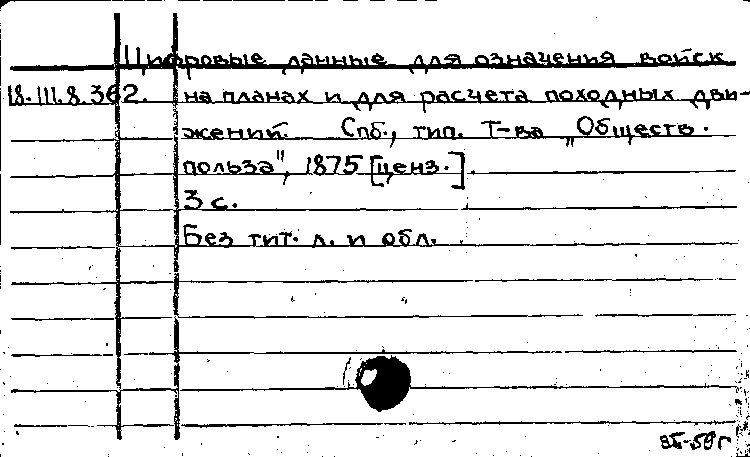 Цифровые данные для означения войск
18.III.8.362. на планах и для расчета походных дви-
жений. Спб., тип. Т-ва „Обществ.
польза", 1875 [ценз.].
3 с.
Без тит. л. и обл.